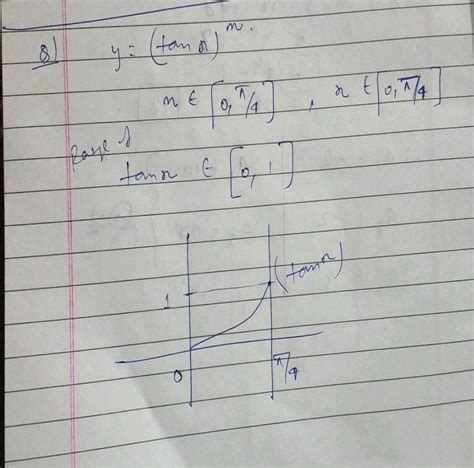 8) y = (tan x)^n.
x ∈ [0, π/4] , x ∈ [0, π/4]
Range of
tan x ∈ [0, 1]
(tan x)
1
0 π/4